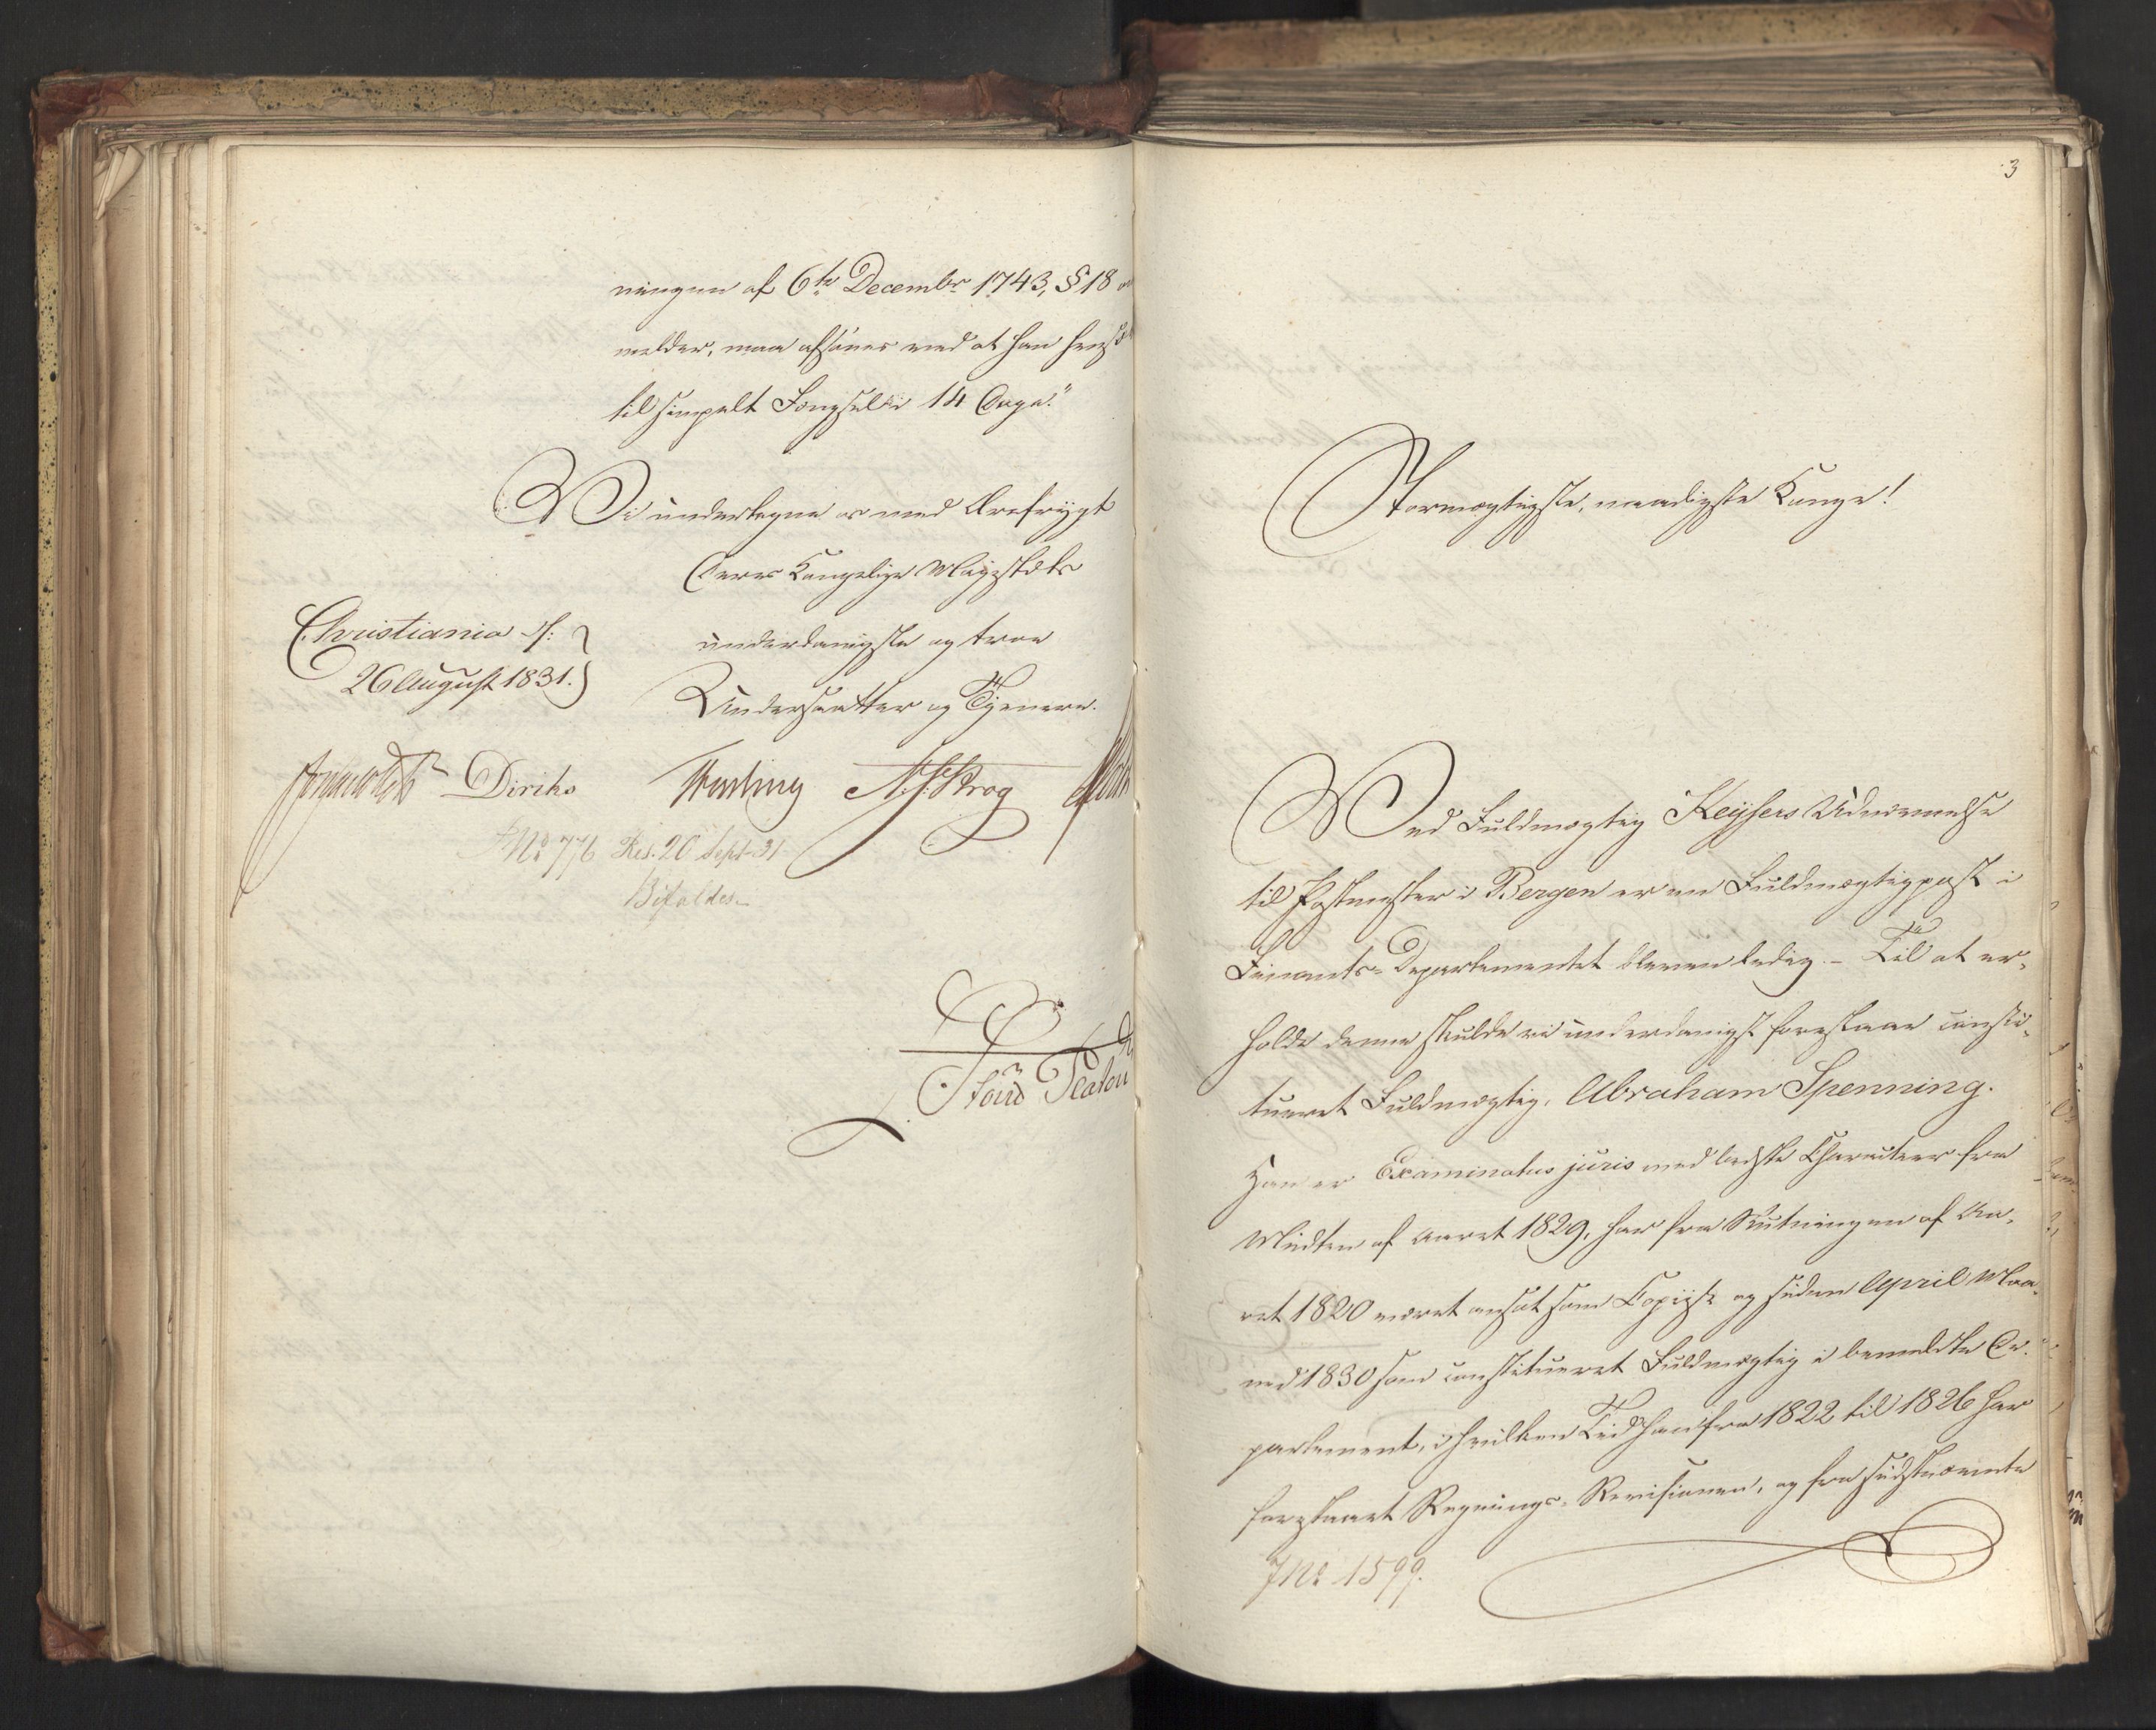 ningen af 6te Decembr 1743, § 18 om
melder, maa afsones med at han hensæt
til simpelt Fængsel i 14 Dage."
Vi undertegne os med Ærefrygt
Deres Kongelige Majestæts
underdanigste og troe
Undersaatter og Tjenere.
Christiania d:
26 August 1831.
Diriks
N. J. Krog
No 776 Res. 20 Sept 31
Bifaldes
Stoud Platou
3
Stormægtigste, naadigste Konge!
Ved Fuldmægtig Keysers Udnævnelse
til Postmester i Bergen er en Fuldmægtigpost i
Finants-Departementet bleven ledig. - Til at er-
holde denne skulde vi underdanigst foreslaae consti-
tueret Fuldmægtig, Abraham Spenning.
Han er Examinatus juris med bedste Charakteer fra
Midten af Aaret 1829, har fra Slutningen af Aa-
ret 1820 været ansat som Copiist og siden April Maa-
ned 1830 som constitueret Fuldmægtig i bemeldte De-
partement, i hvilken Tid han fra 1822 til 1826 har
forestaaet Regnings-Revisionen, og fra sidstnævnte
JNo 1599.